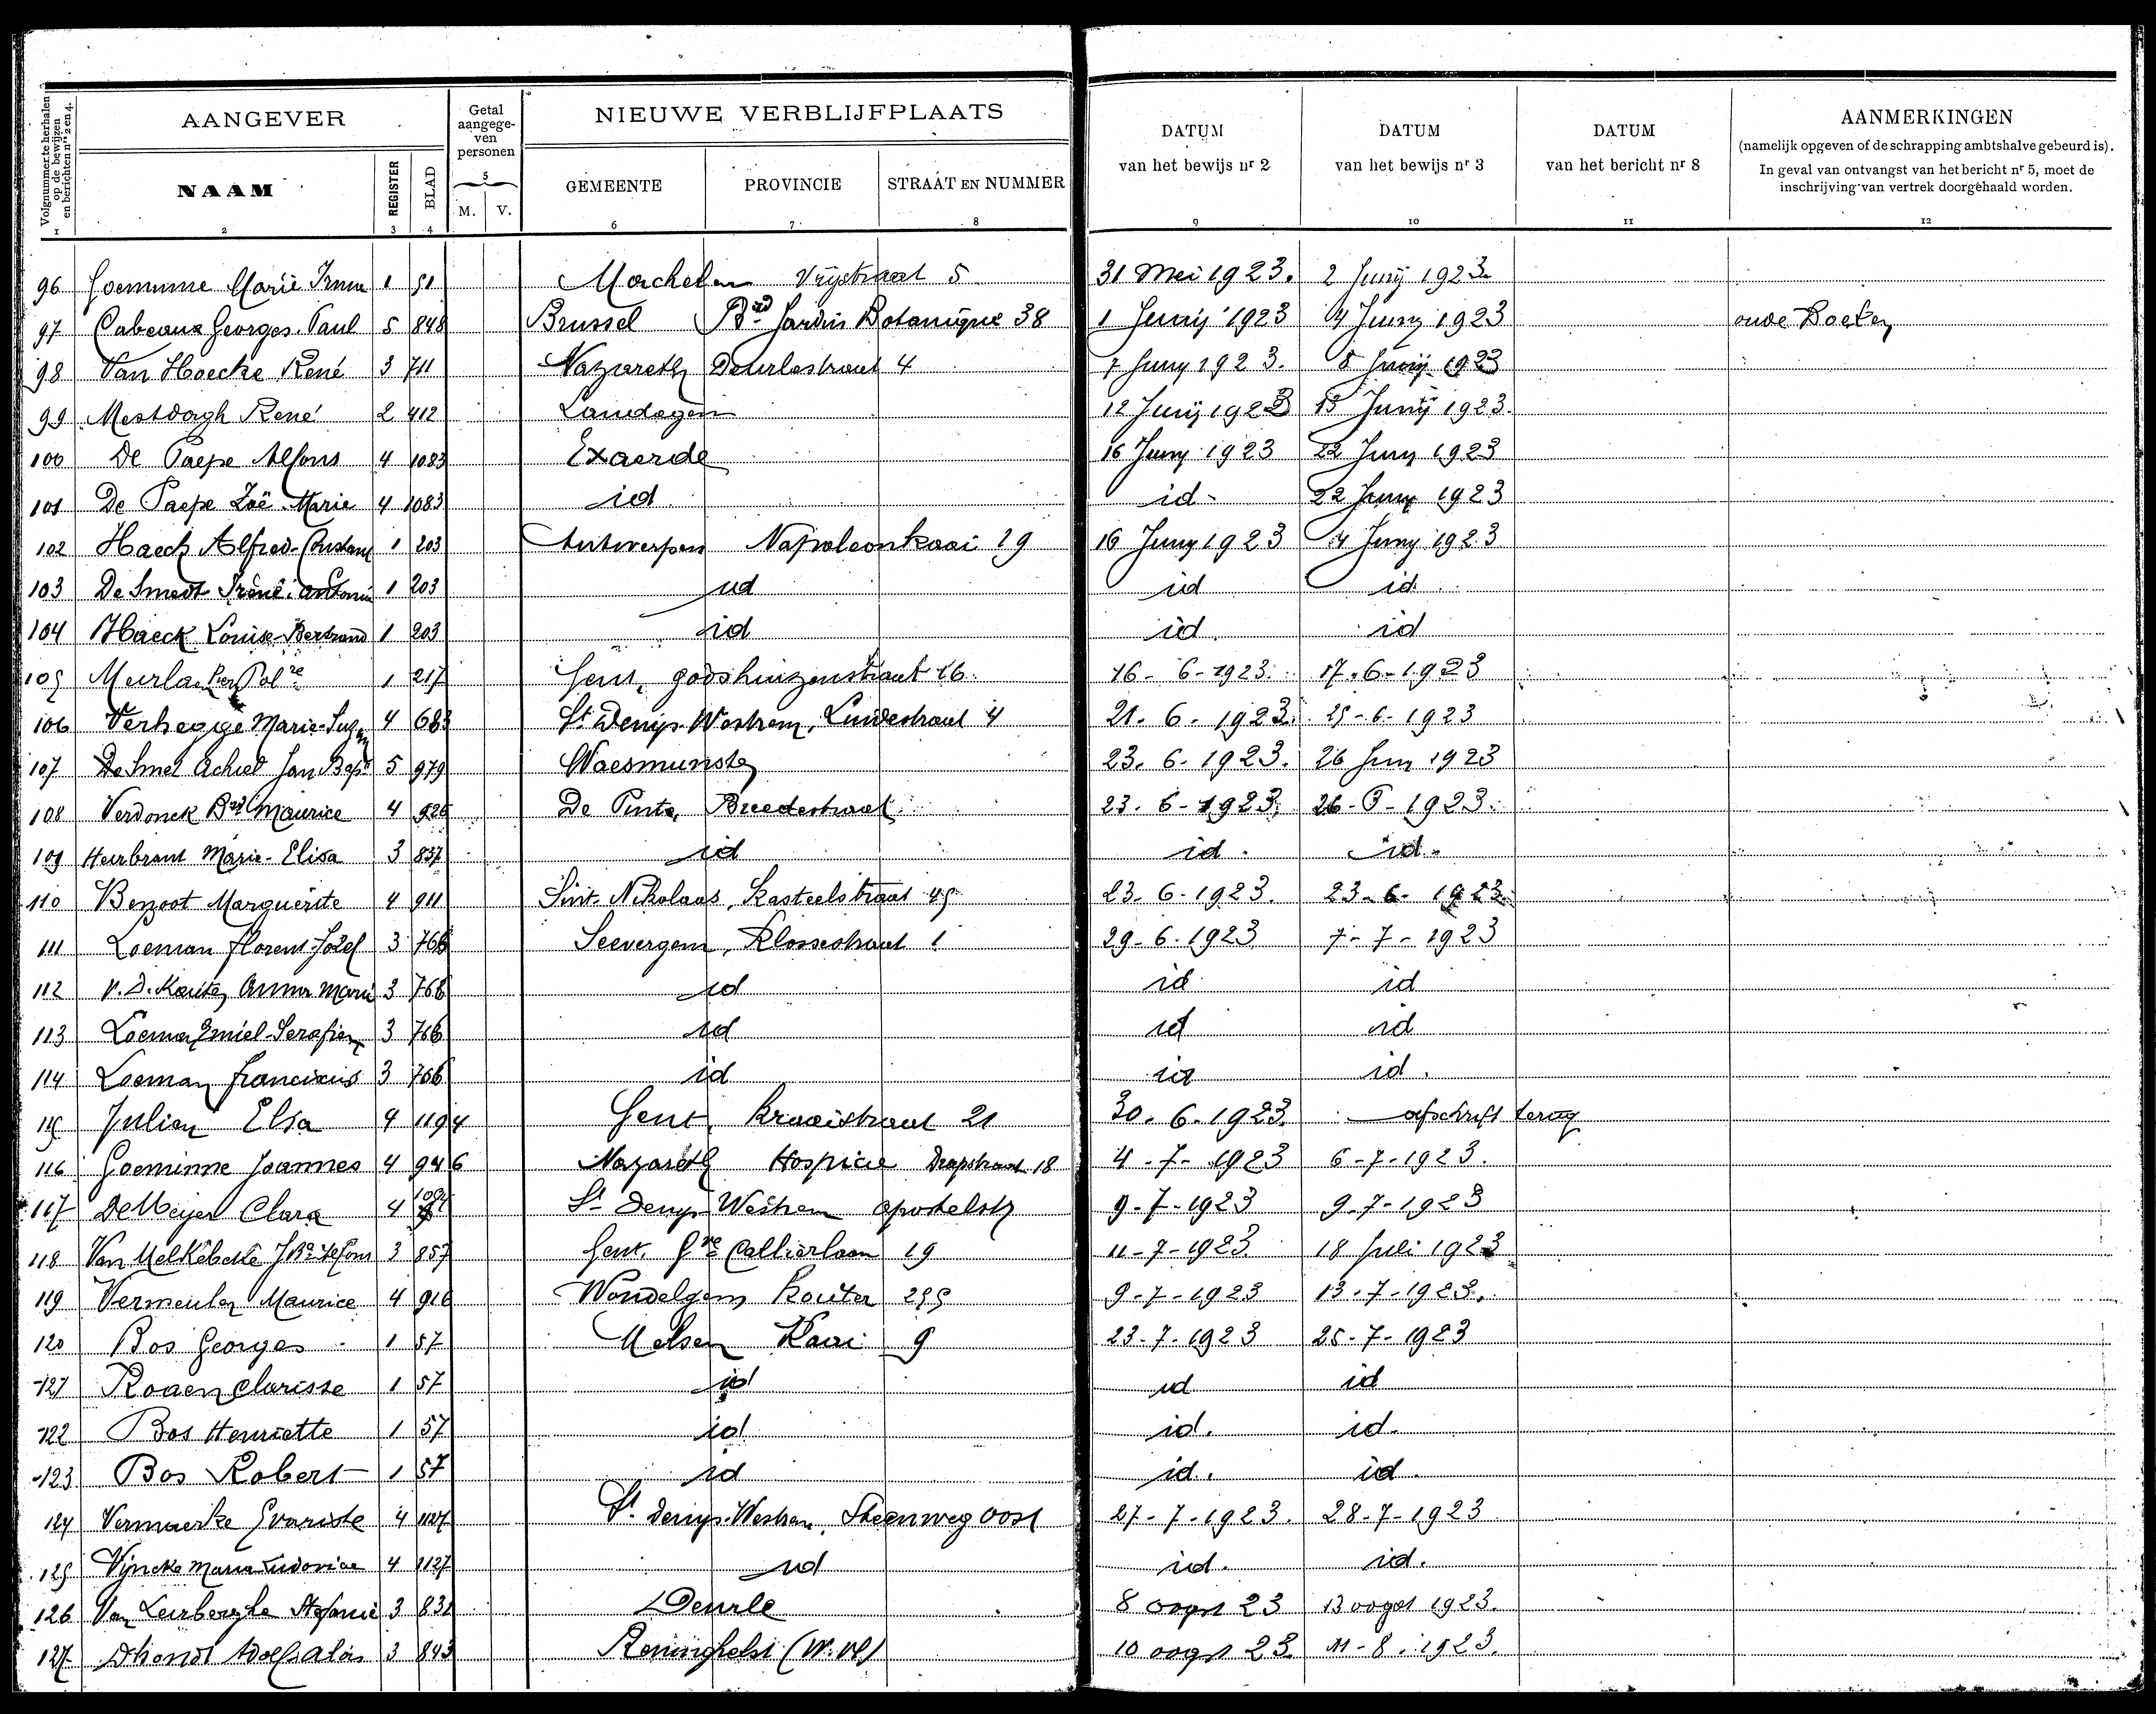 Volgnummer te herhalen op de bewijzen en berichten nrs 2 en 4.
AANGEVER
Getal aangegeven personen
NIEUWE VERBLIJFPLAATS
DATUM van het bewijs nr 2
DATUM van het bewijs nr 3
DATUM van het bericht nr 8
AANMERKINGEN
(namelijk opgeven of de schrapping ambtshalve gebeurd is).
In geval van ontvangst van het bericht nr 5, moet de
inschrijving van vertrek doorgehaald worden.
NAAM REGISTER BLAD 5 M. V. GEMEENTE PROVINCIE STRAAT EN NUMMER
1 2 3 4 6 7 8 9 10 11 12
96 Goeminne Marie Irma 1 51 Machelen Vrijstraat 5 31 Mei 1923. 2 Junij 1923
97 Cabeaux Georges Paul 5 848 Brussel Bd Jardin Botanique 38 1 Junij 1923 4 Juny 1923 oude Boeken
98 Van Hoecke René 3 711 Nazareth Deurlestraat 4 7 Juny 1923. 8 Junij 1923
99 Mestdagh René 2 412 Landegem 12 Junij 1923 13 Junij 1923.
100 De Paepe Alfons 4 1083 Exaerde 16 Juny 1923 22 Juny 1923
101 De Paepe Zoë Marie 4 1083 id. id- 22 Juny 1923
102 Haeck Alfred-Constant 1 203 Antwerpen Napoleonkaai 19 16 Juny 1923 4 Juny 1923
103 De Smedt Irène 1 203 id id id.
104 Haeck Louise-Bertrand 1 203 id id. id
105 1 217 Gent, godshuizenstraat 26. 16-6-1923. 17-6-1923
106 Verhegge Marie-Suzan 4 683 St Denijs-Westrem, Lindestraat 4 21.6.1923. 25-6-1923
107 De Smet Achiel Jan Bapt 5 979 Waesmunster 23.6.1923. 26 Juny 1923
108 Verdonck Bd Maurice 4 926 De Pinte, Breedestraat 23.6-1923. 26-6-1923.
109 Heirbrant Marie-Elisa 3 837 id id. id.
110 Marguerite 4 911 Sint-Nikolaas, Kasteelstraat 45 23.6-1923. 23-6-1923.
111 Loeman Florent-Jozef 3 766 Seevergem, Klossestraat 1 29-6.1923 7-7-1923
112 V.D. Anna Marie 3 766 id id id
113 Loeman Emiel-Serafien 3 766 id id id
114 Loeman Franciscus 3 766 id id id.
115 Julien Elsa 4 1194 Gent, Kraaistraat 21 30.6.1923. afschrift terug
116 Goeminne Joannes 4 946 Nazareth Hospice Drapstraat 18 4-7-1923 6-7-1923.
117 De Meyer Clara 4 St Denijs-Westrem apostelstr 9-7-1923 9-7-1923
118 Van Melkebeke J.Bte Alfons 3 857 Gent. Gve Callierlaan 19 11-7-1923 18 Juli 1923
119 Vermeulen Maurice 4 916 Wondelgem Kouter 295 9-7-1923 13-7-1923.
120 Bos Georges 1 57 Melsen Kaai 9 23-7-1923 25-7-1923
121 Roaen Clarisse 1 57 id id id
122 Bos Henriette 1 57 id id. id.
123 Bos Robert 1 57 id id. id.
124 Vermaerke Evariste 4 1127 St Denijs-Westrem, Steenweg Oost 27-7-1923. 28-7-1923
125 Vyncke Maria Ludovica 4 1127 id id. id.
126 Van Leirberghe Stefanie 3 832 Deurle 8 oogst 23 13 oogst 1923.
127 Dhondt Adolf Alois 3 843 Reninghelst (W.Vl) 10 oogst 23. 11-8.1923.